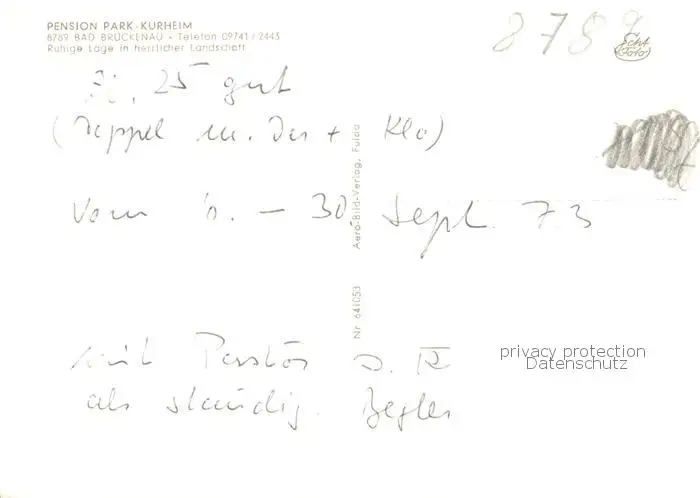 PENSION PARK-KURHEIM
8789 BAD BRÜCKENAU · Telefon 09741/2443
Ruhige Lage in herrlicher Landschaft
8789
Echt Foto
Zi. 25 gut
(Doppel m. Du + Klo)
vom - 30. Sept. 73
mit
als ständig. Begleit
Aero-Bild-Verlag, Fulda
Nr 641053
privacy protection
Datenschutz